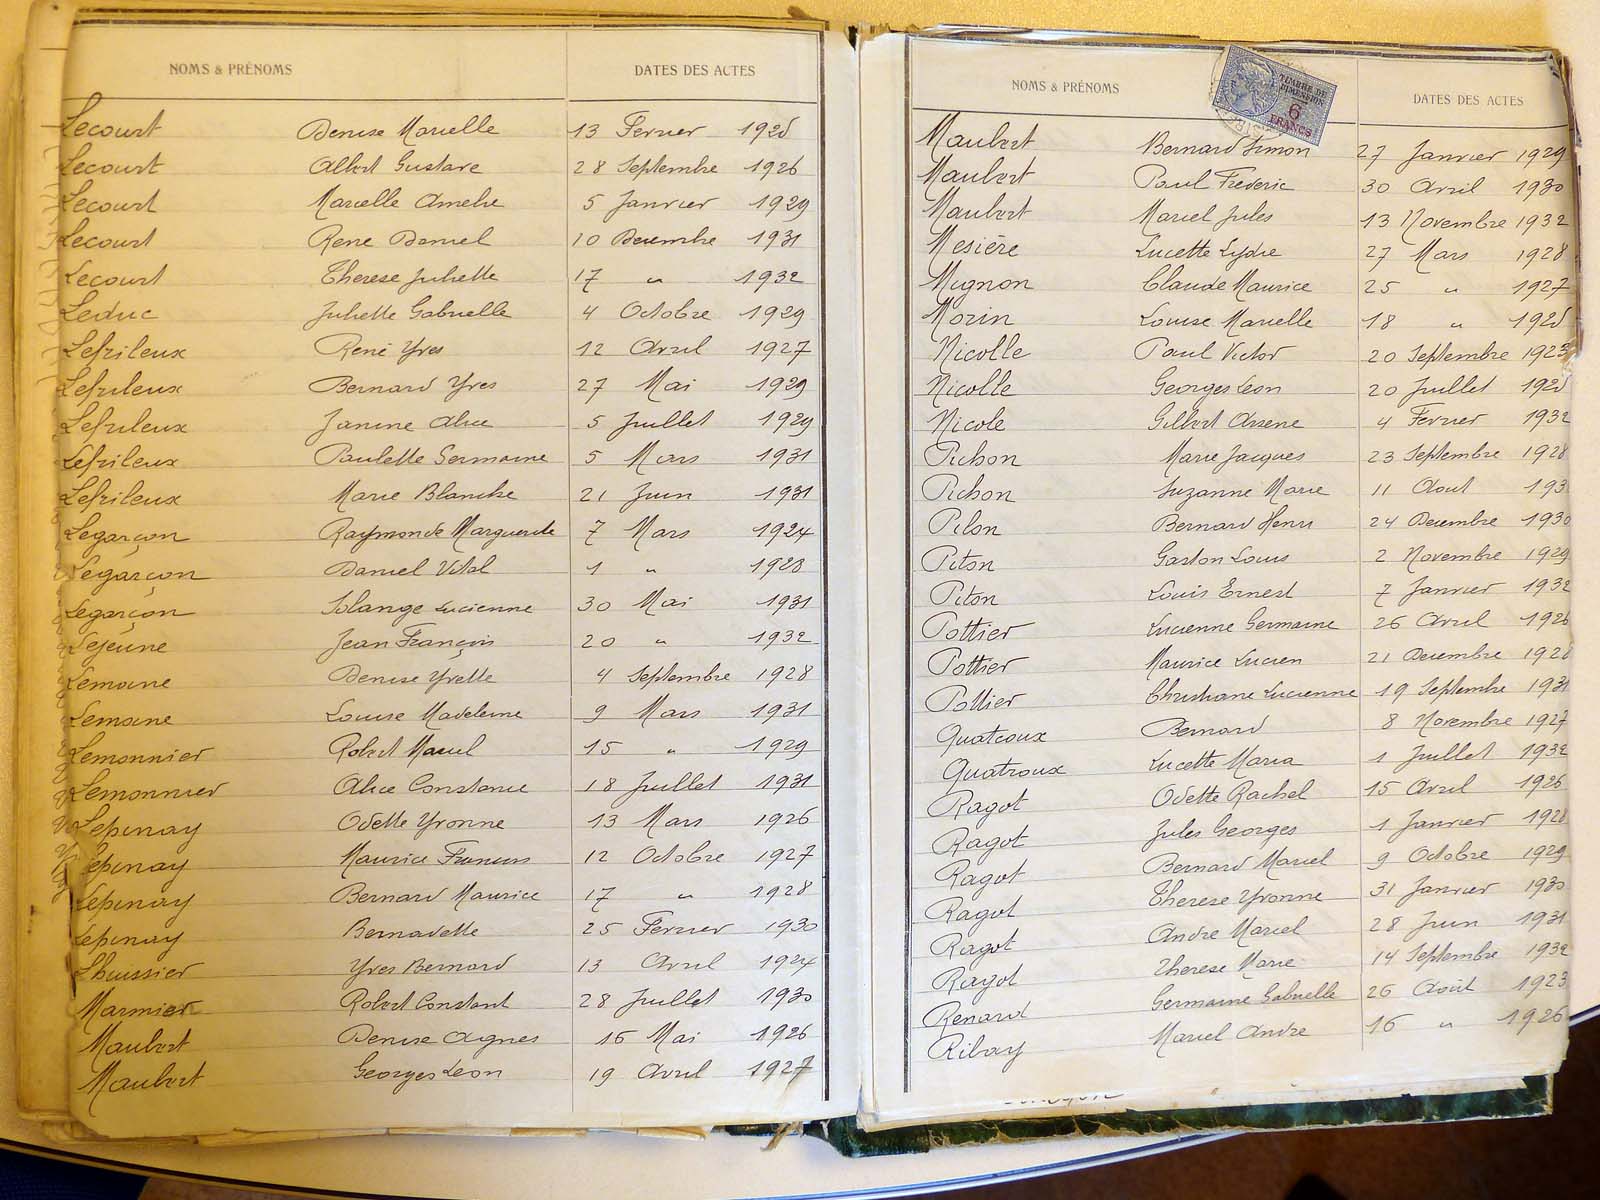 NOMS & PRÉNOMS DATES DES ACTES
Lecourt Denise Marielle 13 Fevrier 1925
Lecourt Albert Gustave 28 Septembre 1926
Lecourt Marcelle Amelie 5 Janvier 1929
Lecourt Rene Daniel 10 Decembre 1931
Lecourt Therese Juliette 17 " 1932
Leduc Juliette Gabrielle 4 Octobre 1929
Lefrileux René Yves 12 Avril 1927
Lefrileux Bernard Yves 27 Mai 1929
Lefrileux Janine Alice 5 Juillet 1929
Lefrileux Paulette Germaine 5 Mars 1931
Lefrileux Marie Blanche 21 Juin 1931
Legarçon Raymonde Marguerite 7 Mars 1924
Legarçon Daniel Vital 1 " 1928
Legarçon Solange Lucienne 30 Mai 1931
Lejeune Jean François 20 " 1932
Lemoine Denise Yvette 4 Septembre 1928
Lemoine Louise Madeleine 9 Mars 1931
Lemonnier Robert Marcel 15 " 1929
Lemonnier Alice Constance 18 Juillet 1931
Lepinay Odette Yvonne 13 Mars 1926
Lepinay Maurice Francois 12 Octobre 1927
Lepinay Bernard Maurice 17 " 1928
Lepinay Bernadette 25 Fevrier 1930
Lhuissier Yves Bernard 13 Avril 1924
Marmier Robert Constant 28 Juillet 1930
Maubert Denise Agnes 16 Mai 1926
Maubert Georges Leon 19 Avril 1927
NOMS & PRÉNOMS DATES DES ACTES
TIMBRE DE
DIMENSION
6
FRANCS
Maubert Bernard Simon 27 Janvier 1929
Maubert Paul Frederic 30 Avril 1930
Maubert Marcel Jules 13 Novembre 1932
Mesière Lucette Lydie 27 Mars 1928
Mignon Claude Maurice 25 " 1927
Morin Louise Marielle 18 " 1925
Nicolle Paul Victor 20 Septembre 1923
Nicolle Georges Leon 20 Juillet 1925
Nicole Gilbert Arsene 4 Fevrier 1932
Pichon Marie Jacques 23 Septembre 1928
Pichon Suzanne Marie 11 Aout 193
Pilon Bernard Henri 24 Decembre 1930
Piton Gaston Louis 2 Novembre 1929
Piton Louis Ernest 7 Janvier 1932
Pottier Lucienne Germaine 26 Avril 1926
Pottier Maurice Lucien 21 Decembre 1928
Pottier Christiane Lucienne 19 Septembre 1931
Quatroux Bernard 8 Novembre 1927
Quatroux Lucette Maria 1 Juillet 1932
Ragot Odette Rachel 15 Avril 1926
Ragot Jules Georges 1 Janvier 1928
Ragot Bernard Marcel 9 Octobre 1929
Ragot Therese Yvonne 31 Janvier 1930
Ragot Andre Marcel 28 Juin 1931
Ragot Therese Marie 14 Septembre 1932
Renard Germaine Gabrielle 26 Août 1923
Ribay Marcel Andre 16 " 1926